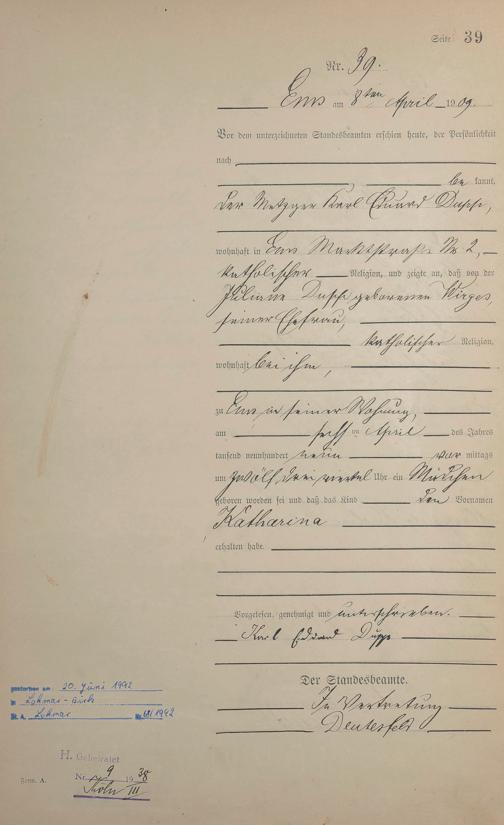 Seite 39
Nr. 39.
Ems am 8ten April 1909.
Vor dem unterzeichneten Standesbeamten erschien heute, der Persönlichkeit
nach
be kannt,
der Metzger Karl Eduard Duppe,
wohnhaft in Ems Marktstraße Nr 2,
katholischer Religion, und zeigte an, daß von der
Juliane Duppe geborenen Wirges,
seiner Ehefrau,
katholischer Religion,
wohnhaft bei ihm,
zu Ems in seiner Wohnung,
am sechsten April des Jahres
tausend neunhundert neun vormittags
um zwölf dreiviertel Uhr ein Mädchen
geboren worden sei und daß das Kind den Vornamen
Katharina
erhalten habe.
Vorgelesen, genehmigt und unterschrieben.
Karl Eduard Duppe
Der Standesbeamte.
In Vertretung
gestorben am: 20. Juni 1992
in Lohmar
St. A. Lohmar Nr. 1992
H. Geheiratet
Nr. 9 1938
Köln III
Form. A.